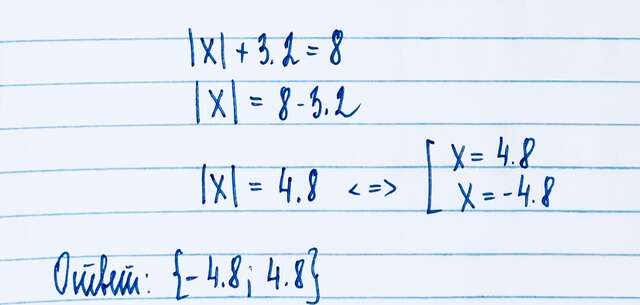 |x| + 3.2 = 8
|x| = 8 - 3.2
|x| = 4.8 <=> [ x = 4.8
x = -4.8
Ответ: {-4.8; 4.8}